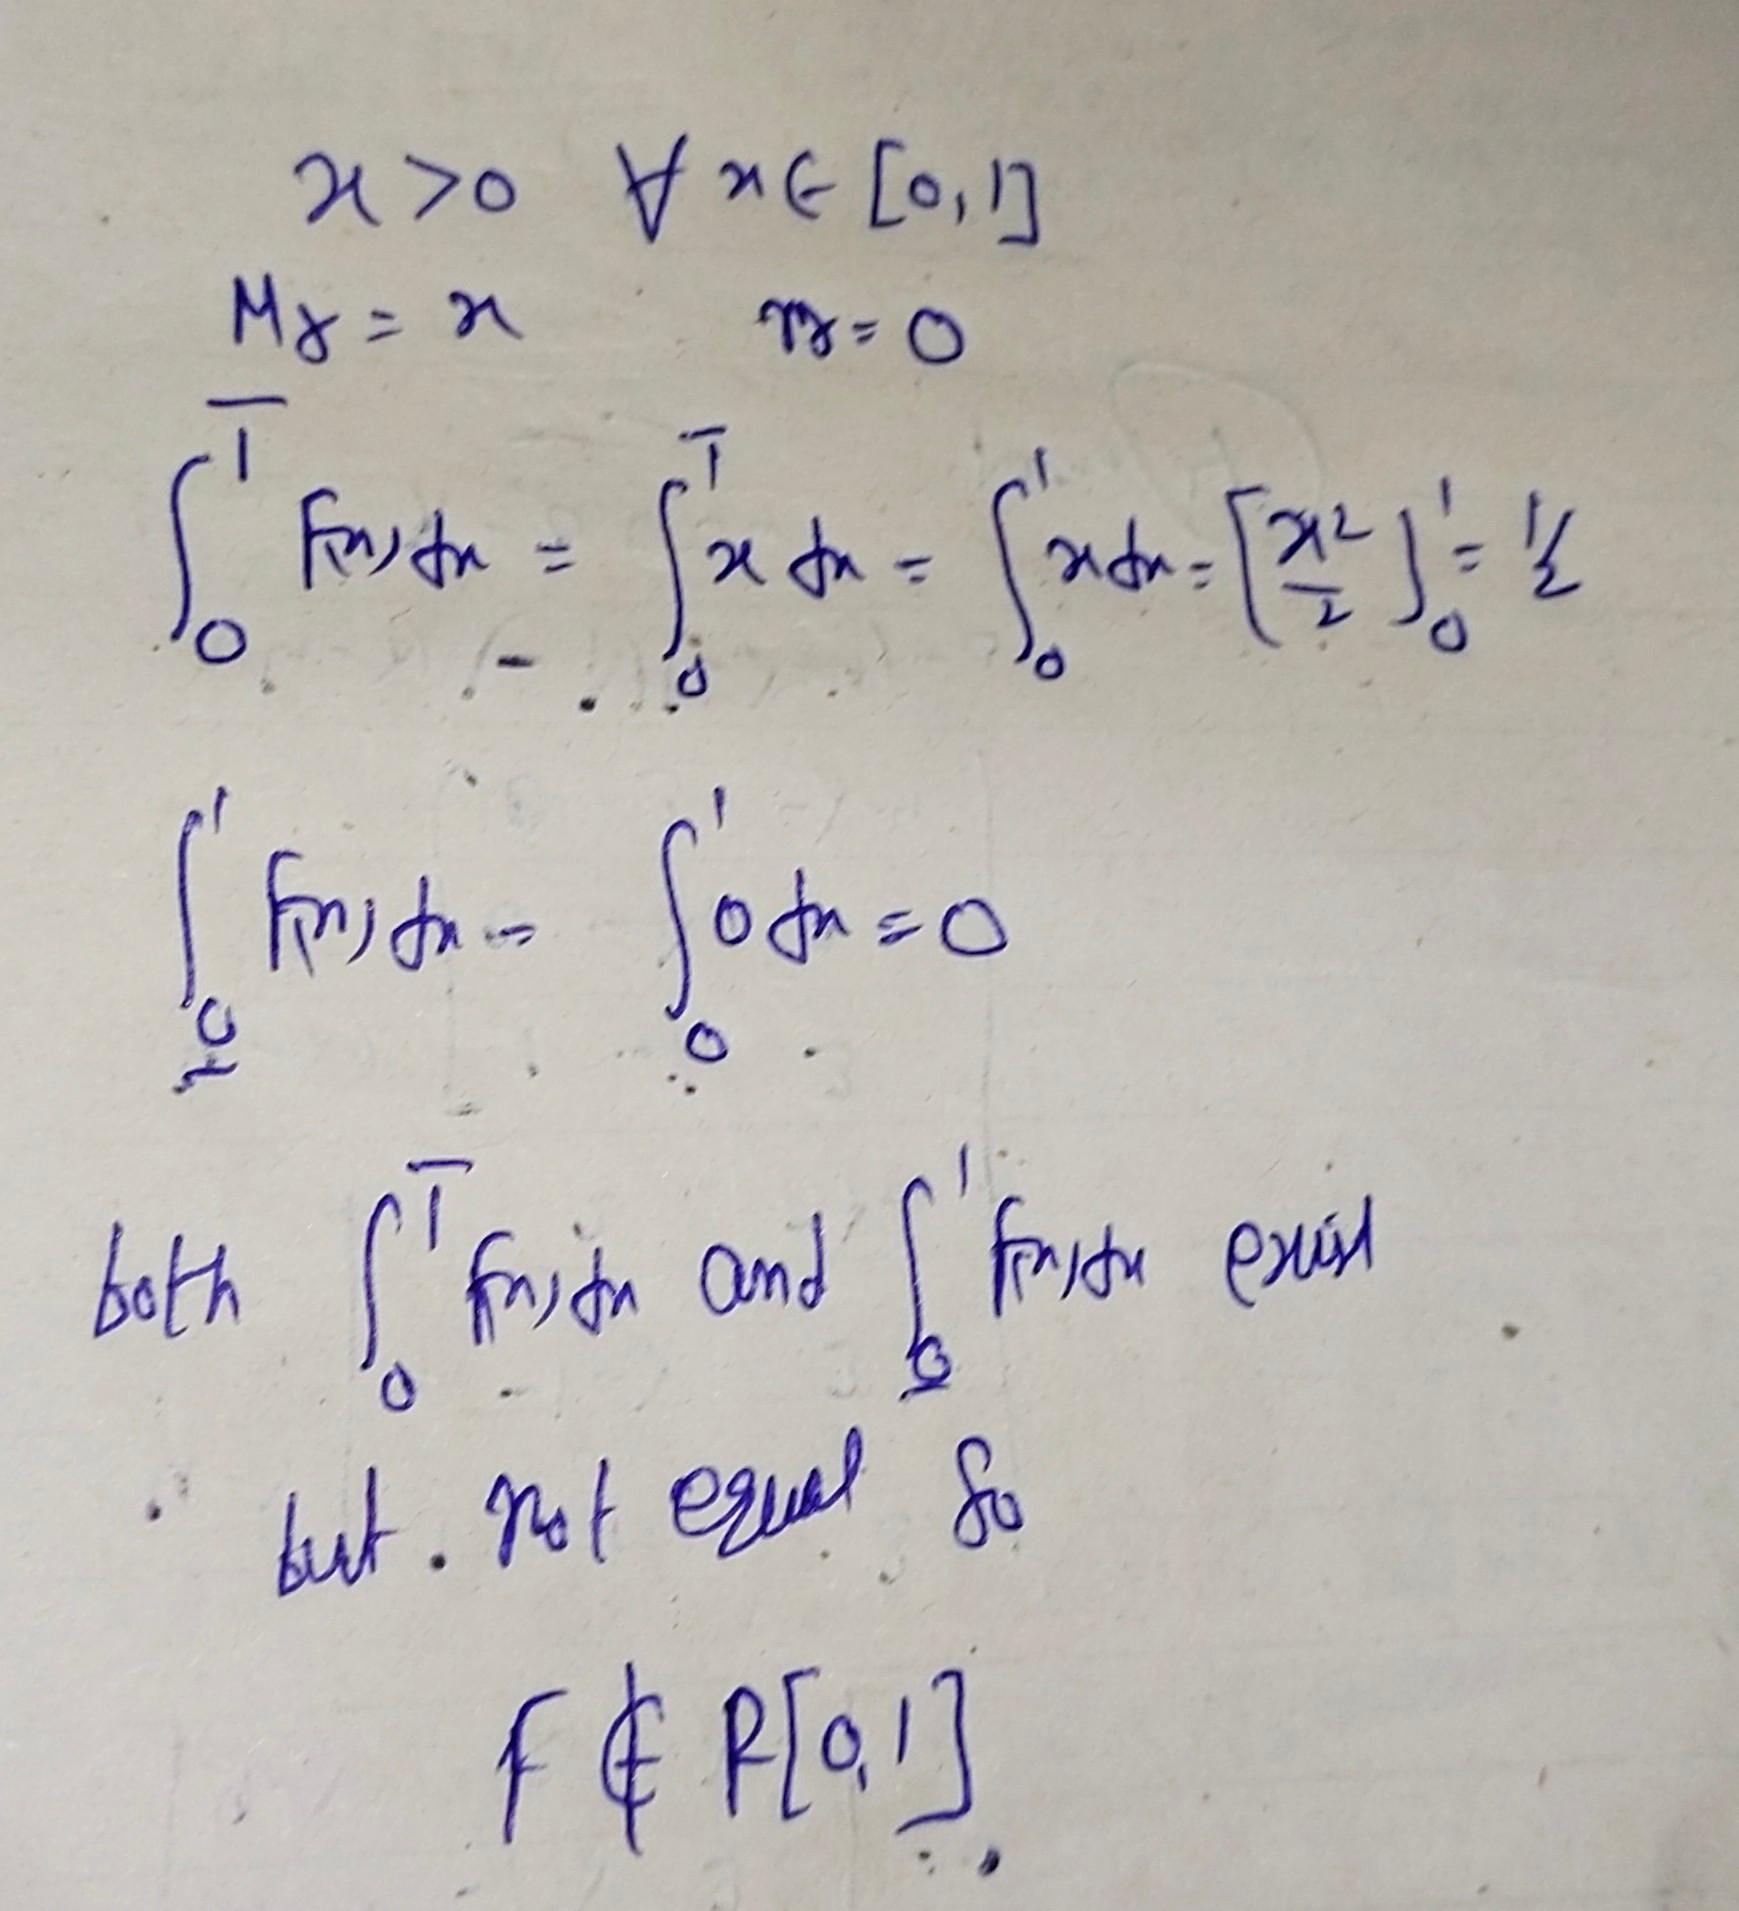 x > 0 ∀ x ∈ [0, 1]
Mr = x mr = 0
∫₀¹̅ f(x) dx = ∫₀¹̅ x dx = ∫₀¹ x dx = [x²/2]₀¹ = 1/2
∫₀̲¹ f(x) dx = ∫₀¹ 0 dx = 0
both ∫₀¹̅ f(x) dx and ∫₀̲¹ f(x) dx exist
but not equal so
f ∉ R[0, 1]